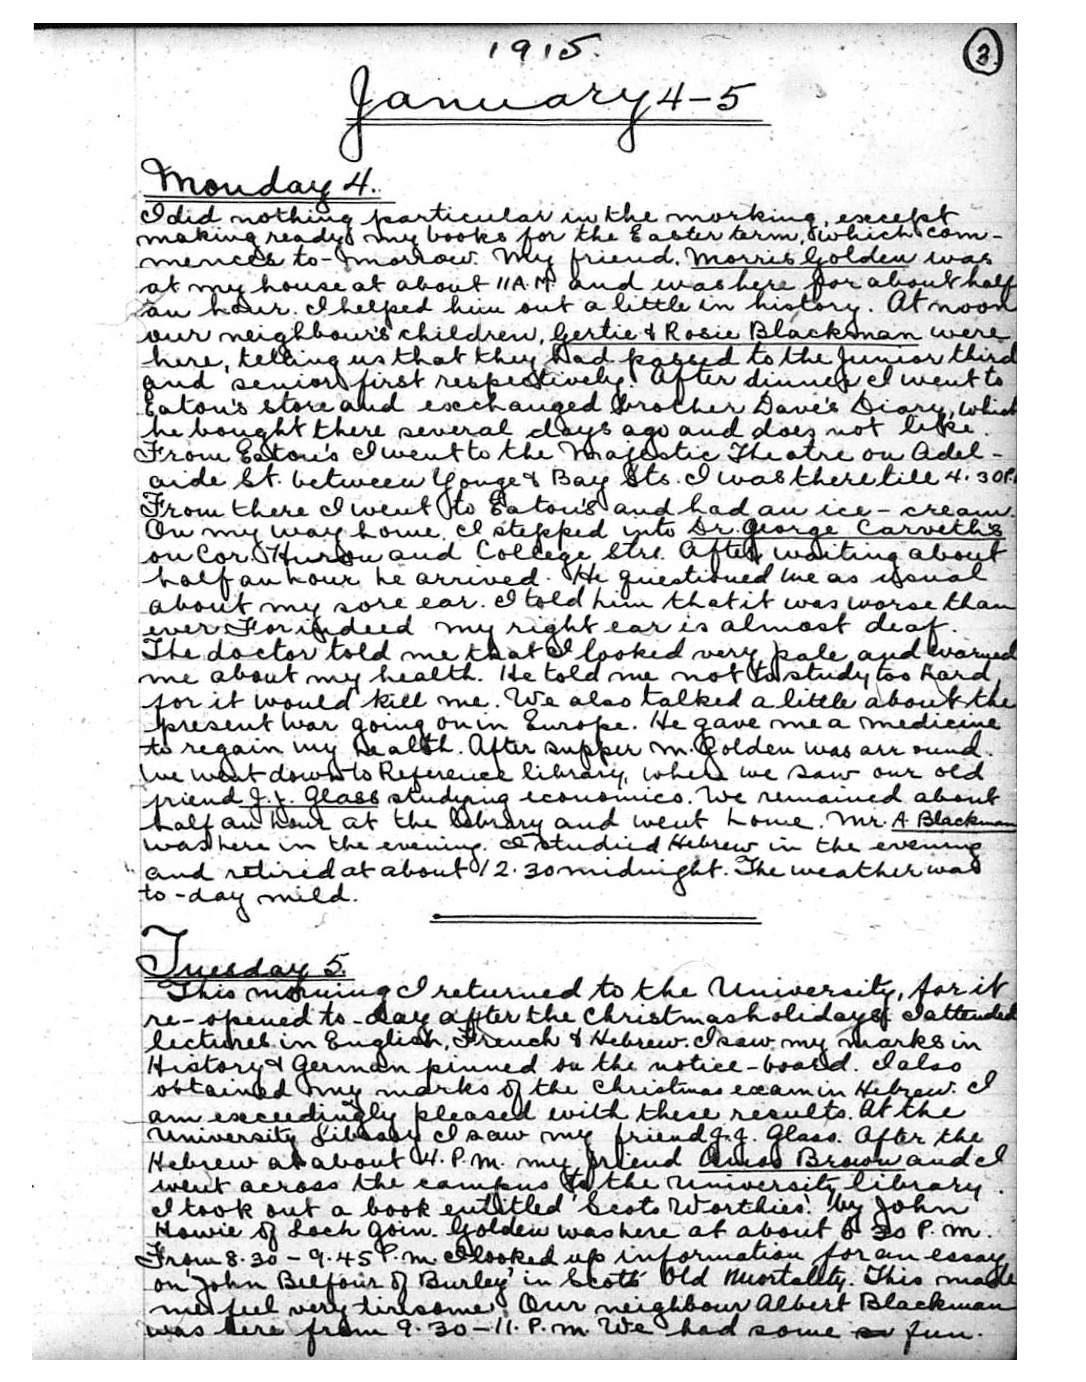 1915.
3
January 4-5
Monday 4.
I did nothing particular in the morking, except
making ready my books for the Easter term, which com-
mences to-morrow. My friend, Morris Golden was
at my house at about 11 A.M. and was here for about half
an hour. I helped him out a little in history. At noon
our neighbour's children, Gertie & Rosie Blackman were
here, telling us that they had passed to the Junior third
and senior first respectively. After dinner I went to
Eaton's store and exchanged brother Dave's Diary, which
he bought there several days ago and does not like.
From Eaton's I went to the Majestic Theatre on Adel-
aide St. between Yonge & Bay Sts. I was there till 4.30 P.
From there I went to Eaton's and had an ice-cream.
On my way home I stepped into Dr. George Carveth's
on Cor. Huron and College Strs. After waiting about
half an hour he arrived. He questioned me as usual
about my sore ear. I told him that it was worse than
ever. For indeed my right ear is almost deaf.
The doctor told me that I looked very pale and warned
me about my health. He told me not to study too hard,
for it would kill me. We also talked a little about the
present War going on in Europe. He gave me a medicine
to regain my health. After supper M. Golden was arround.
We went down to Reference library, where we saw our old
friend J.J. Glass studying economics. We remained about
half an hour at the library and went home. Mr. A Blackman
was here in the evening. I studied Hebrew in the evening
and retired at about 12.30 midnight. The weather was
to-day mild.
Tuesday 5.
This morning I returned to the University, for it
re-opened to-day after the Christmas holidays. I attended
lectures in English, French & Hebrew. I saw my marks in
History & German pinned on the notice-board. I also
obtained my marks of the Christmas exam in Hebrew. I
am exceedingly pleased with these results. At the
University Library I saw my friend J.J. Glass. After the
Hebrew at about 4. P.M. my friend Amos Brown and I
went across the campus to the University library.
I took out a book entitled 'Scots Worthies' by John
Howie of Loch Goin. Golden was here at about 6 30 P.M.
From 8.30-9.45 P.M. I looked up information for an essay
on 'John Belfour of Burley' in Scott's Old Mortality. This made
me feel very tiresome. Our neighbour Albert Blackman
was here from 9.30-11. P.M. We had some fun.